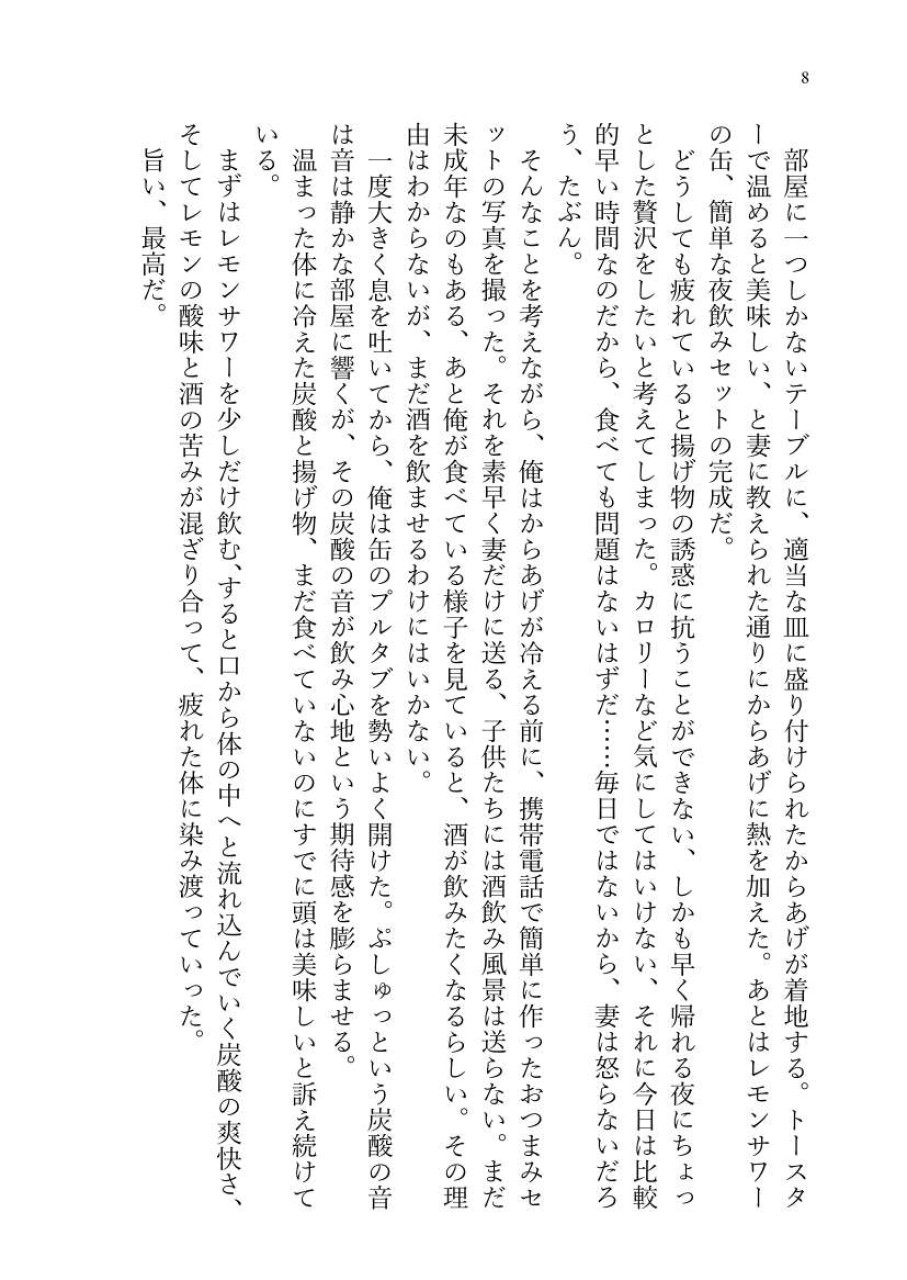 8
　部屋に一つしかないテーブルに、適当な皿に盛り付けられたからあげが着地する。トースタ
ーで温めると美味しい、と妻に教えられた通りにからあげに熱を加えた。あとはレモンサワー
の缶、簡単な夜飲みセットの完成だ。
　どうしても疲れていると揚げ物の誘惑に抗うことができない、しかも早く帰れる夜にちょっ
とした贅沢をしたいと考えてしまった。カロリーなど気にしてはいけない、それに今日は比較
的早い時間なのだから、食べても問題はないはずだ……毎日ではないから、妻は怒らないだろ
う、たぶん。
　そんなことを考えながら、俺はからあげが冷える前に、携帯電話で簡単に作ったおつまみセ
ットの写真を撮った。それを素早く妻だけに送る、子供たちには酒飲み風景は送らない。まだ
未成年なのもある、あと俺が食べている様子を見ていると、酒が飲みたくなるらしい。その理
由はわからないが、まだ酒を飲ませるわけにはいかない。
　一度大きく息を吐いてから、俺は缶のプルタブを勢いよく開けた。ぷしゅっという炭酸の音
は音は静かな部屋に響くが、その炭酸の音が飲み心地という期待感を膨らませる。
　温まった体に冷えた炭酸と揚げ物、まだ食べていないのにすでに頭は美味しいと訴え続けて
いる。
　まずはレモンサワーを少しだけ飲む、すると口から体の中へと流れ込んでいく炭酸の爽快さ、
そしてレモンの酸味と酒の苦みが混ざり合って、疲れた体に染み渡っていった。
　旨い、最高だ。